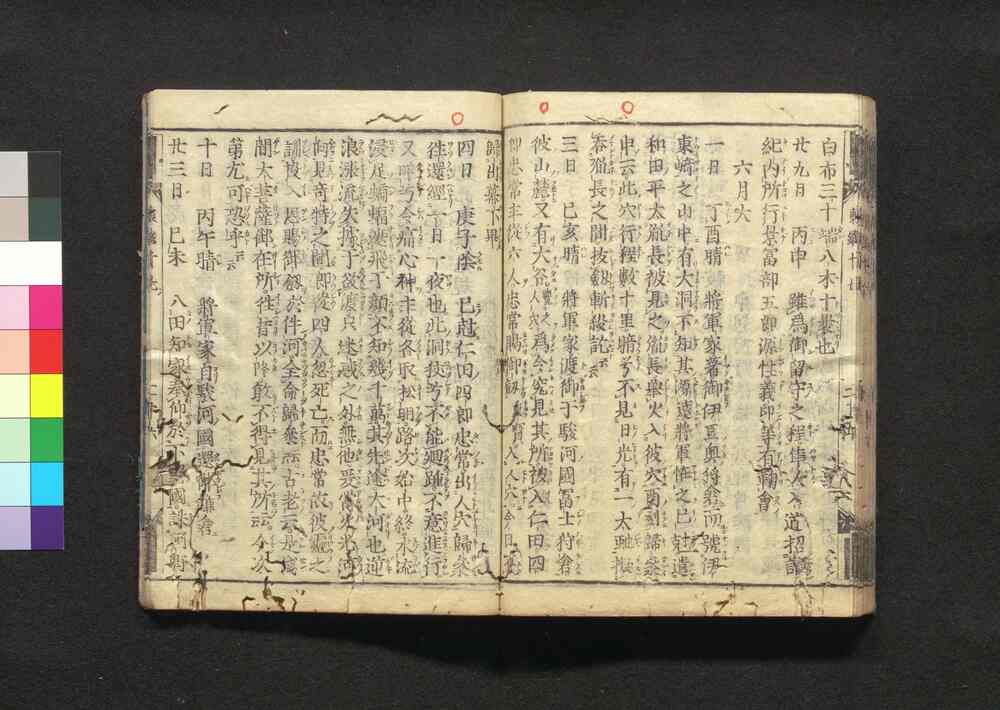 白布三十端八木十裹也
廿九日　丙申　雖爲御留守之程隼人入道招請
紀内所行景冨部五郎源性義印等有鞠會
六月大
一日　丁酉晴　將軍家著御伊豆奥狩倉而號伊
東崎之山中有大洞不知其源遠將軍恠之巳尅遣
和田平太胤長被見之胤長舉火入彼穴酉刻歸參
申云此穴行程數十里暗兮不見日光有一大虵擬
呑胤長之間抜劔斬殺訖云云
三日　己亥晴　將軍家渡御于駿河國冨士狩倉
彼山麓又有大谷人穴號之爲令究見其所被入仁田四
郎忠常主從六人忠常賜御劔重寶入人穴今日不
歸出幕下畢
四日　庚子陰　巳尅仁田四郎忠常出人穴歸參
往還經一日一夜也此洞狹兮不能廻踵不意進行
又暗兮令痛心神主從各取松明路次始中終水流
浸足蝙蝠遮飛于顔不知幾千萬其先途大河也逆
浪漲流失據于欲渡只迷惑之外無他爰當火光河
向見奇特之間郎從四人忽死亡而忠常依彼靈之
訓投入恩賜御劔於件河全命歸參云云古老云是淺
間大菩薩御在所往昔以降敢不得見其所云云今次
第尤可恐乎云云
十日　丙午晴　將軍家自駿河國還御鎌倉
廿三日　己未　八田知家奉仰於下野國誅阿野